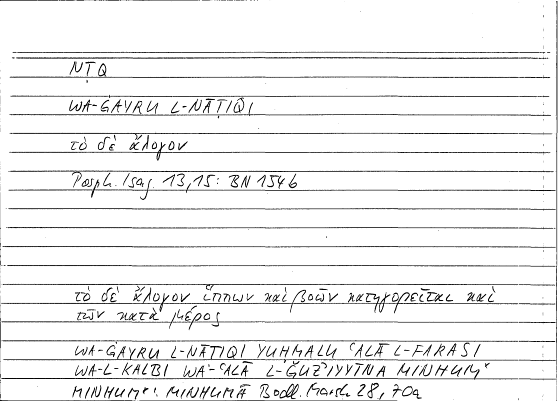 NṬQ
WA-ĠAYRU L-NĀṬIQI
τὸ δὲ ἄλογον
Porph. Isag. 13,15: BN 154b
τὸ δὲ ἄλογον ἵππων καὶ βοῶν κατηγορεῖται καὶ
τῶν κατὰ μέρος
WA-ĠAYRU L-NĀṬIQI YUḤMALU ʿALĀ L-FARASI
WA-L-KALBI WA-ʿALĀ L-ǦUZʾIYYĪNA MINHUM*
MINHUM*: MINHUMĀ Bodl. Marsh 28, 70a